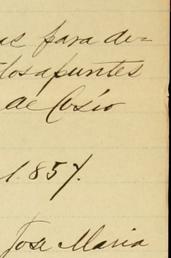 as para de=
los apuntes
de Cosío
1857.
Jose Maria